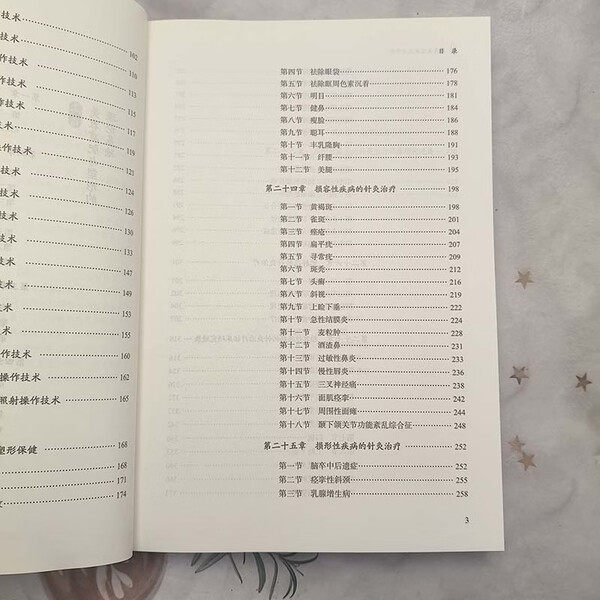 技术
技术 102
操作技术 106
操作技术 110
作技术 113
作技术 115
技术 117
操作技术 121
技术 124
技术 126
技术 130
技术 133
技术 147
技术 149
技术 151
技术 155
作技术 160
操作技术 162
照射操作技术 165
塑形保健 168
168
171
174
目 录
第四节 祛除眼袋 176
第五节 祛除眶周色素沉着 178
第六节 明目 181
第七节 健鼻 184
第八节 瘦脸 186
第九节 聪耳 188
第十节 丰乳隆胸 191
第十一节 纤腰 193
第十二节 美腿 195
第二十四章 损容性疾病的针灸治疗 198
第一节 黄褐斑 198
第二节 雀斑 201
第三节 痤疮 204
第四节 扁平疣 207
第五节 寻常疣 209
第六节 斑秃 212
第七节 头癣 216
第八节 斜视 219
第九节 上睑下垂 221
第十节 急性结膜炎 224
第十一节 麦粒肿 228
第十二节 酒渣鼻 231
第十三节 过敏性鼻炎 233
第十四节 慢性唇炎 236
第十五节 三叉神经痛 238
第十六节 面肌痉挛 242
第十七节 周围性面瘫 245
第十八节 颞下颌关节功能紊乱综合征 248
第二十五章 损形性疾病的针灸治疗 252
第一节 脑卒中后遗症 252
第二节 痉挛性斜颈 255
第三节 乳腺增生病 258
3